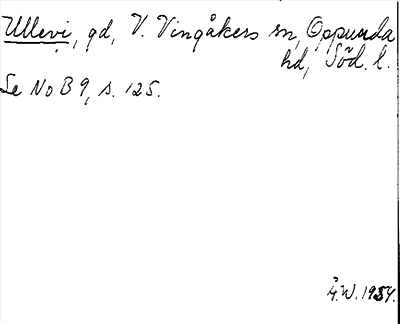 Ullevi, gd, V. Vingåkers sn, Oppunda
hd, Söd. l.
Se No B 9, s. 125.
Å.W. 1934.